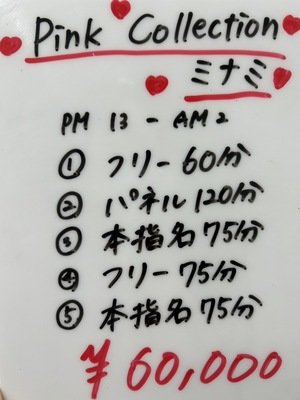 Pink Collection
ミナミ
PM 13 - AM 2
① フリー 60分
② パネル 120分
③ 本指名 75分
④ フリー 75分
⑤ 本指名 75分
¥60,000